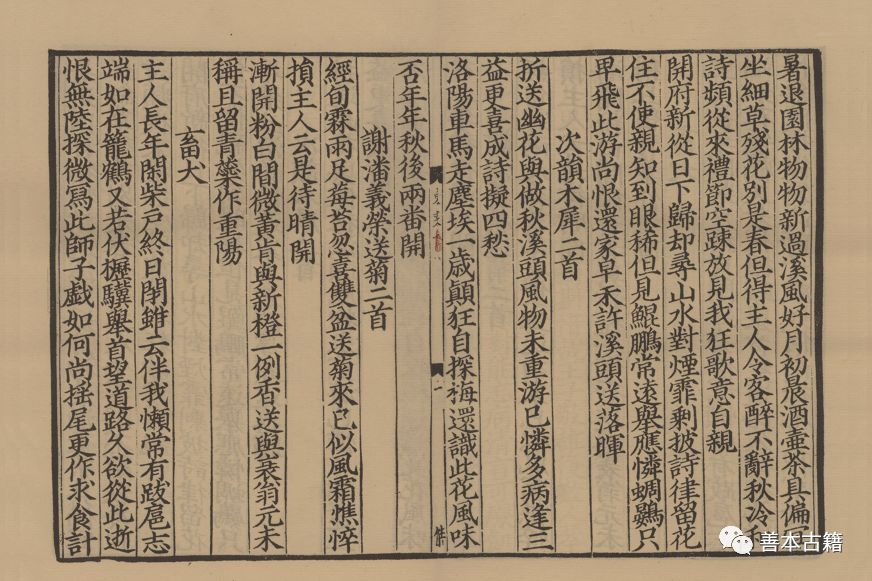 暑退園林物物新過溪風好月初晨酒壺茶具偏
坐細草殘花別是春但得主人令客醉不辭秋冷
詩頻從來禮節空疎放見我狂歌意自親
開府新從日下歸却尋山水對煙霏剩披詩律留花
住不使親知到眼稀但見鯤鵬常遠舉應憐蜩鷃只
卑飛此游尚恨還家早未許溪頭送落暉
次韻木犀二首
折送幽花與做秋溪頭風物未重游已憐多病逢三
益更喜成詩擬四愁
洛陽車馬走塵埃一歲顛狂自探梅還識此花風味
否年年秋後兩番開
謝潘義榮送菊二首
經旬霖雨足莓苔忽喜雙盆送菊來已似風霜憔悴
損主人云是待晴開
漸開粉白間微黃肯與新橙一例香送與衰翁元未
稱且留青蘂作重陽
畜犬
主人長年閉柴戸終日閉雖云伴我懶常有跋扈志
端如在籠鶴又若伏櫪驥舉首望道路久欲從此逝
恨無陸探微寫此師子戯如何尚揺尾更作求食計
善本古籍